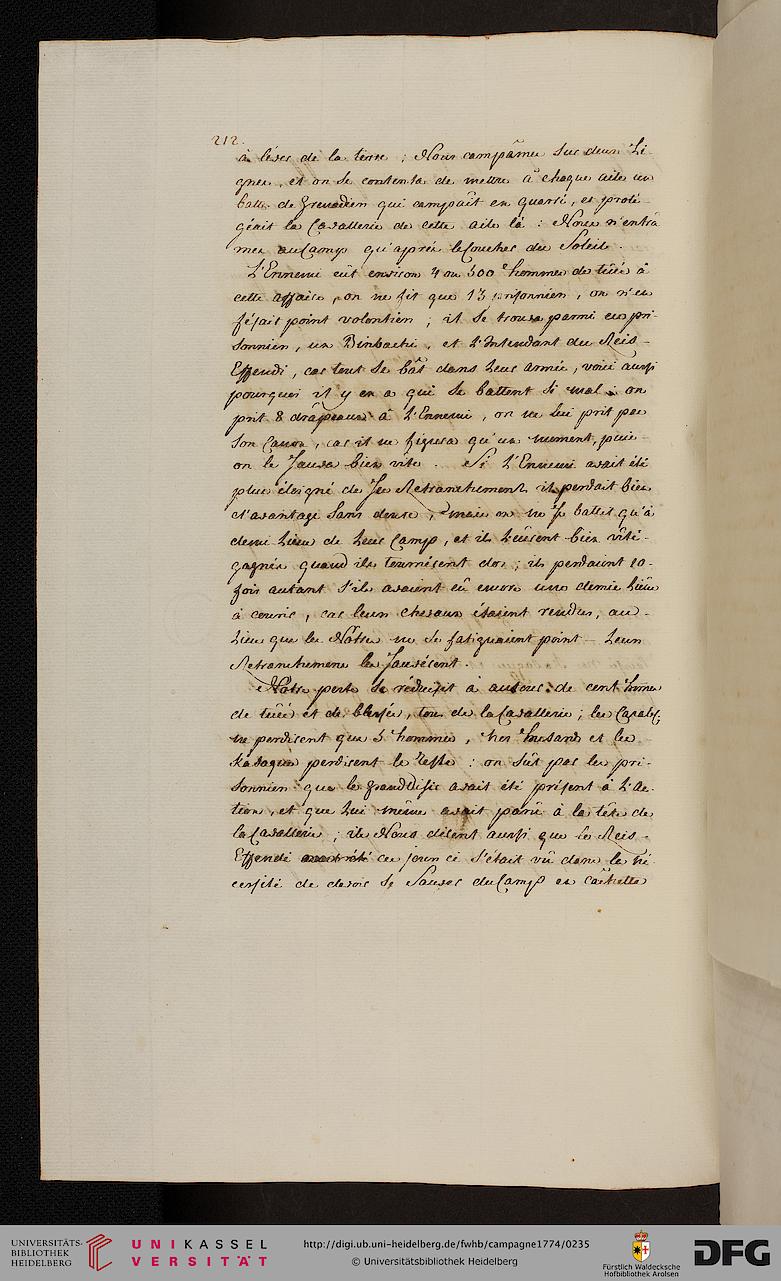 212.
à léver de la terre ; Nous campâmes sur deux Li-
gnes, et on se contenta de mettre à chaque aile un
batt: de Grenadiers qui campait en quarré, et proté-
géait la Cavallerie de cette aile là : Nous n'entrâ
mes au Camp qu'après le coucher du Soleil.
L'Ennemi eût environ 4 ou 500 hommes de tüés à
cette affaire, on ne fit que 13 prisonniers, on n'en
fésait point volontiers ; il se trouva parmi ces pri-
sonniers, un Binbachi, et L'Intendant du Reis-
Effendi, car tout se bât dans Leur armée, voici aussi
pourquoi il y en a qui se battent si mal ; on
prit 8 drâpeaux à L'Ennemi, on ne Lui prit pas
son Canon, car il ne figura qu'un moment, puis
on le sauva bien vîte. Si L'Ennemi avait été
plus éloigné de ses Retranchements il perdait bien
d'avantage sans doute, mais on ne se battit qu'à
demi Lieue de Leur Camp, et ils L'eûrent bien vîte
gagnés quand ils tournèrent dos ; ils perdaient 10-
fois autant s'ils avaient eû encore une demie Lieüe
à courir, car leurs chevaux étaient rendus, au-
Lieu que les Nôtres ne se fatiguaient point - Leurs
Retranchemens les sauvérent.
Nôtre perte se réduisit à autour de cent hommes
de tüés et de blessés, tous de la Cavallerie ; les Carab:
ne perdirent que 3 hommes, les Husards et les
Kosaques perdirent le reste : on sût par les pri-
sonniers que le grand Visir avait été présent à L'ac-
tion, et que Lui même avait parû à la tête de
la Cavallerie ; ils Nous dirent aussi que le Reis-
Effendi ces jours ci s'était vû dans la né
cessité de devoir se sauver du Camp en
http://digi.ub.uni-heidelberg.de/fwhb/campagne1774/0235
© Universitätsbibliothek Heidelberg
UNIVERSITÄTS-
BIBLIOTHEK
HEIDELBERG
UNIKASSEL
VERSITÄT
Fürstlich Waldecksche
Hofbibliothek Arolsen
DFG